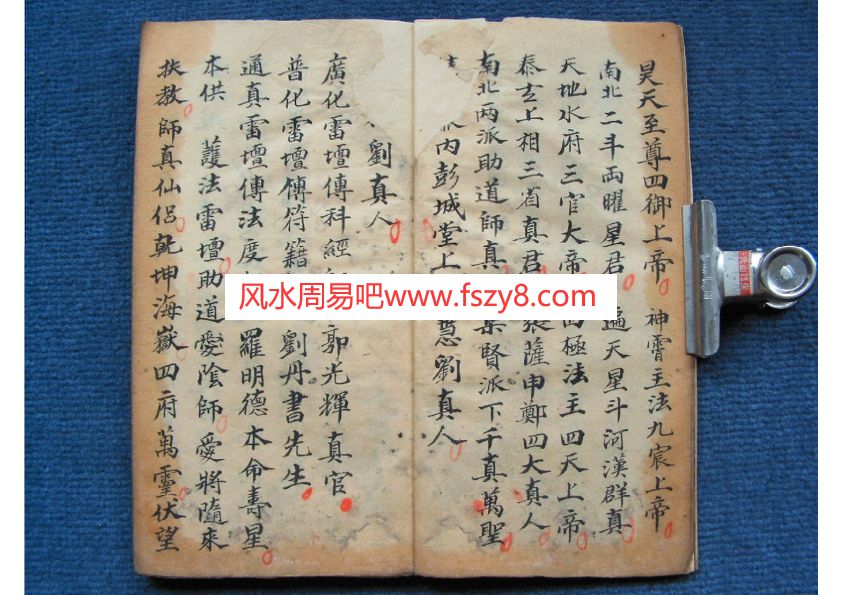 昊天至尊四御上帝 神霄主法九宸上帝
南北二斗両曜星君 遍天星斗河漢群真
天地水府三官大帝 極法主四天上帝
泰玄上相三省真君 張薩申鄭四大真人
南北两派助道師真 賢派下千真萬聖
派内彭城堂上 慧劉真人
劉真人
廣化雷壇傳科經 郭光輝真官
普化雷壇傳符籍 劉丹書先生
通真雷壇傳法度 羅明德本命壽星
本供 護法雷壇助道愛陰師愛將隨来
扶教師真仙侣乾坤海嶽四府萬靈伏望
风水周易吧www.fszy8.com